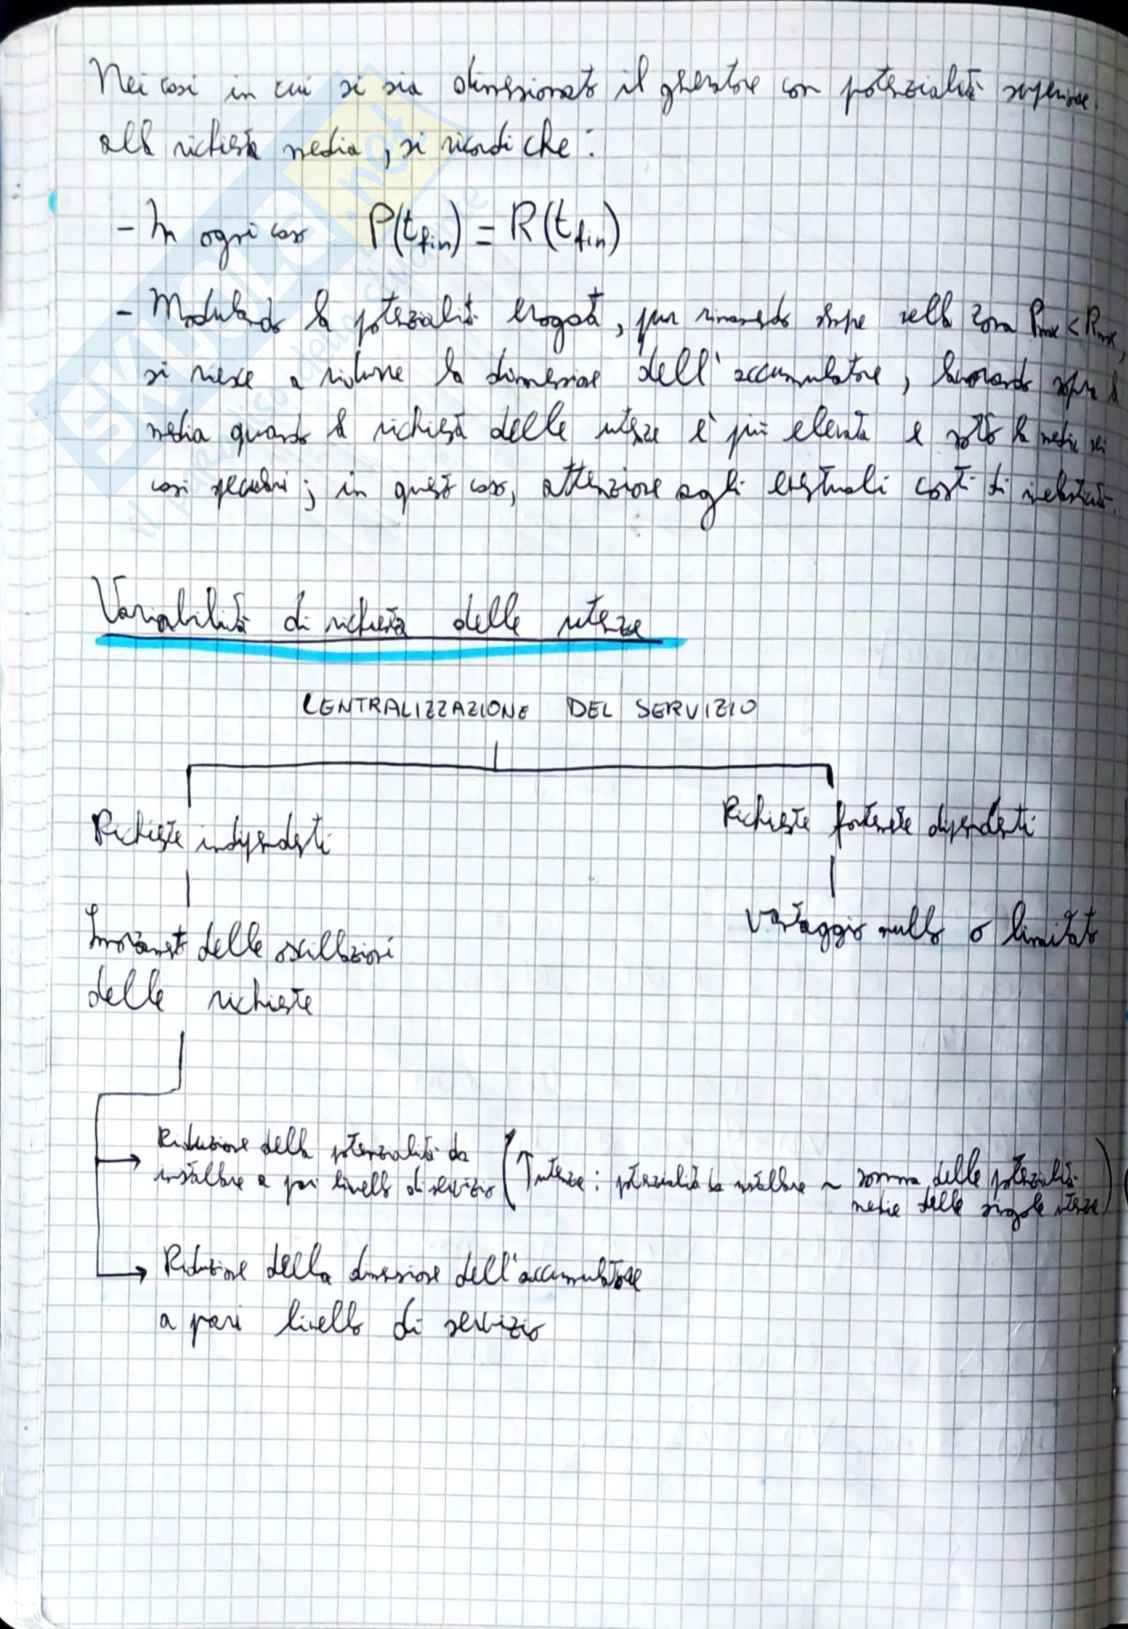 Nei casi in cui si sia dimensionato il generatore con potenzialità superiore
alla richiesta media, si ricordi che:
- In ogni caso P(tfin) = R(tfin)
- Modulando la potenzialità erogata, pur rimanendo sempre nella zona Pmax < Rmax,
si riesce a ridurre la dimensione dell'accumulatore, lavorando sopra la
media quando la richiesta delle utenze è più elevata e sotto la media nei
casi ; in questo caso, attenzione agli eventuali costi di
Variabilità di richiesta delle utenze
CENTRALIZZAZIONE DEL SERVIZIO
Richieste indipendenti
Richieste fortemente dipendenti
Smorzamento delle oscillazioni
delle richieste
Vantaggio nullo o limitato
Riduzione della potenzialità da
installare a pari livello di servizio (↑ utenze: potenzialità da installare ~ somma delle potenzialità
medie delle singole utenze)
Riduzione della dimensione dell'accumulatore
a pari livello di servizio
SKUOLA.net
il paradiso dello studente